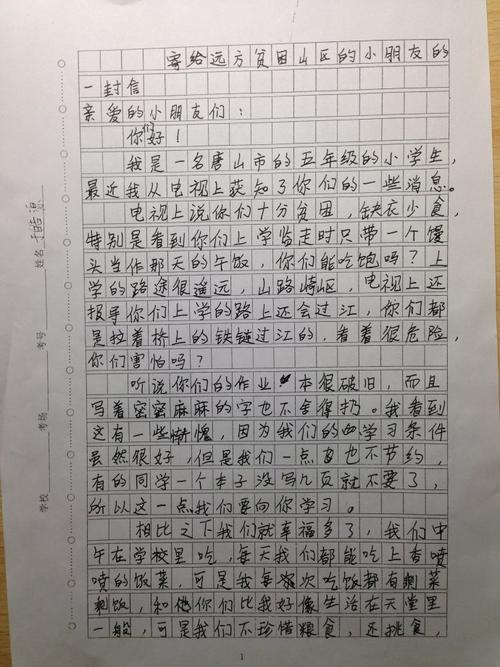 寄给远方贫困山区的小朋友的
一封信
亲爱的小朋友们：
你们好！
我是一名唐山市的五年级的小学生，
最近我从电视上获知了你们的一些消息。
电视上说你们十分贫困，缺衣少食，
特别是看到你们上学临走时只带一个馒
头当作那天的午饭，你们能吃饱吗？上
学的路途很遥远，山路崎岖，电视上还
报导你们上学的路上还会过江，你们都
是拉着桥上的铁链过江的，看着很危险，
你们害怕吗？
听说你们的作业本很破旧，而且
写着密密麻麻的字也不舍得扔。我看到
这有一些惭愧，因为我们的学习条件
虽然很好，但是我们一点也不节约，
有的同学一个本子没写几页就不要了，
所以这一点我们要向你学习。
相比之下我们就幸福多了，我们中
午在学校里吃，每天我们都能吃上香喷
喷的饭菜，可是我每次吃饭都有剩菜
剩饭，和你们比我好像生活在天堂里
一般，可是我们不珍惜粮食，还挑食，
学校
考场
考号
姓名
1